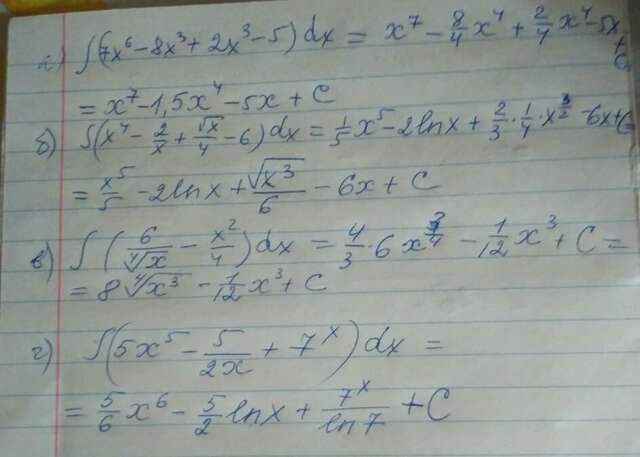 а) ∫(7x⁶ - 8x³ + 2x³ - 5) dx = x⁷ - 8/4 x⁴ + 2/4 x⁴ - 5x + C
= x⁷ - 1,5x⁴ - 5x + C
б) ∫(x⁴ - 2/x + √x/4 - 6) dx = 1/5 x⁵ - 2lnx + 2/3 · 1/4 · x^(3/2) - 6x + C =
= x⁵/5 - 2lnx + √x³/6 - 6x + C
в) ∫(6/⁴√x - x²/4) dx = 4/3 · 6x^(3/4) - 1/12 x³ + C =
= 8 ⁴√x³ - 1/12 x³ + C
г) ∫(5x⁵ - 5/2x + 7ˣ) dx =
= 5/6 x⁶ - 5/2 lnx + 7ˣ/ln7 + C